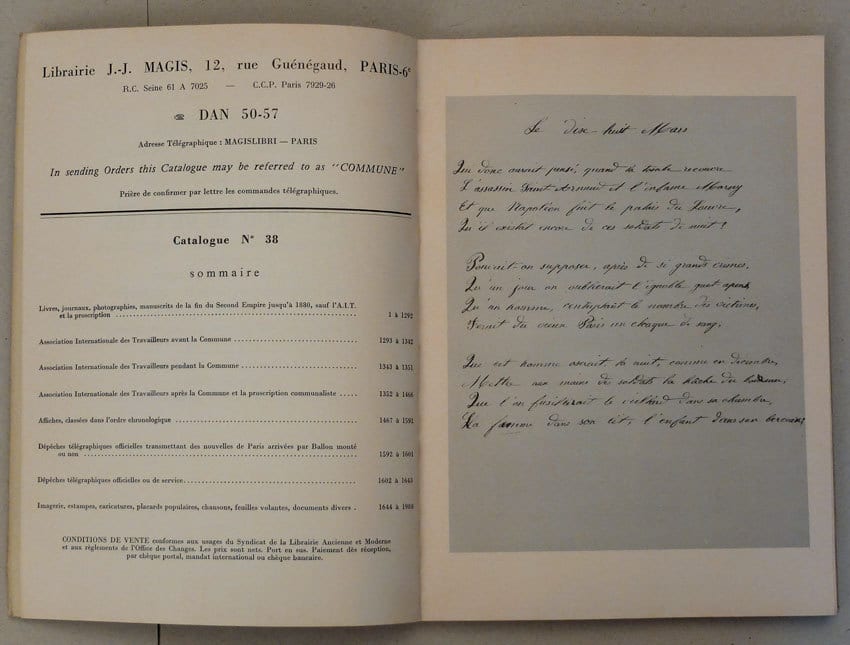 Librairie J.-J. MAGIS, 12, rue Guénégaud, PARIS-6e
R.C. Seine 61 A 7025 — C.C.P. Paris 7929-26
☏ DAN 50-57
Adresse Télégraphique : MAGISLIBRI — PARIS
In sending Orders this Catalogue may be referred to as "COMMUNE"
Prière de confirmer par lettre les commandes télégraphiques.
Catalogue N° 38
sommaire
Livres, journaux, photographies, manuscrits de la fin du Second Empire jusqu'à 1880, sauf l'A.I.T.
et la proscription 1 à 1292
Association Internationale des Travailleurs avant la Commune 1293 à 1342
Association Internationale des Travailleurs pendant la Commune 1343 à 1351
Association Internationale des Travailleurs après la Commune et la proscription communaliste 1352 à 1466
Affiches, classées dans l'ordre chronologique 1467 à 1591
Dépêches télégraphiques officielles transmettant des nouvelles de Paris arrivées par Ballon monté
ou non 1592 à 1601
Dépêches télégraphiques officielles ou de service 1602 à 1643
Imagerie, estampes, caricatures, placards populaires, chansons, feuilles volantes, documents divers 1644 à
CONDITIONS DE VENTE conformes aux usages du Syndicat de la Librairie Ancienne et Moderne
et aux règlements de l'Office des Changes. Les prix sont nets. Port en sus. Paiement dès réception,
par chèque postal, mandat international ou chèque bancaire.
Le dix-huit Mars
Qui donc aurait pensé, quand la
L'assassin Saint Arnaud et l'infâme Morny
Et que Napoléon fuit le palais du Louvre,
Qu'il existait encore de ces soldats de nuit !
Pouvait-on supposer, après de si grands crimes,
Qu'un jour on oublierait l'ignoble guet apens
Qu'un homme, le nombre des victimes,
Ferait du vieux Paris un de sang,
Que cet homme oserait, la nuit, comme en décembre,
Mettre aux mains des soldats la hâche du
Que l'on fusillerait le vieillard dans sa chambre,
La femme dans son lit, l'enfant dans son berceau;